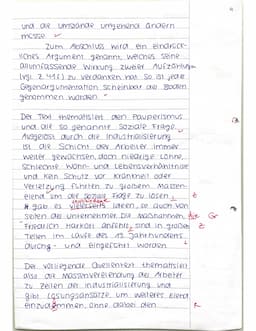 und die Umstände umgehend ändern
müsse
Zum Abschluss wird ein eindrück-
sches Argument genannt, welches seine
allumfassende Wirkung zweier Aufzählung
(vgl. Z. 41f.) zu verdanken hat. So ist jede
Gegenargumentation scheinbar die Boden
genommen worden.
Der Text thematisiert den Pauperismus
und die so genannte Soziale Frage.
Ausgelöst durch die Industrialisierung
ist die Schicht der Arbeiter immer
weiter gewachsen, doch niedrige Löhne,
schlechte Wohn- und Lebensverhältnisse
und kein Schutz vor Krankheit oder
Verletzung führten zu großem Massen-
elend. Um die soziale Frage zu lösen,
gab es vielseits Ideen, so auch von
Seiten der Unternehmer. Die Maßnahmen, die Gr
Friedrich Harkort anführt, sind in großen
Teilen im Laufe des 19. Jahrhunderts
durch- und eingeführt worden.
Der vorliegende Quellentext thematisiert
also die Massenverelendung der Arbeiter
zu Zeiten der Industrialisierung und
gibt Lösungsansätze, um weiteres Elend
einzudämmen, ohne dabei den